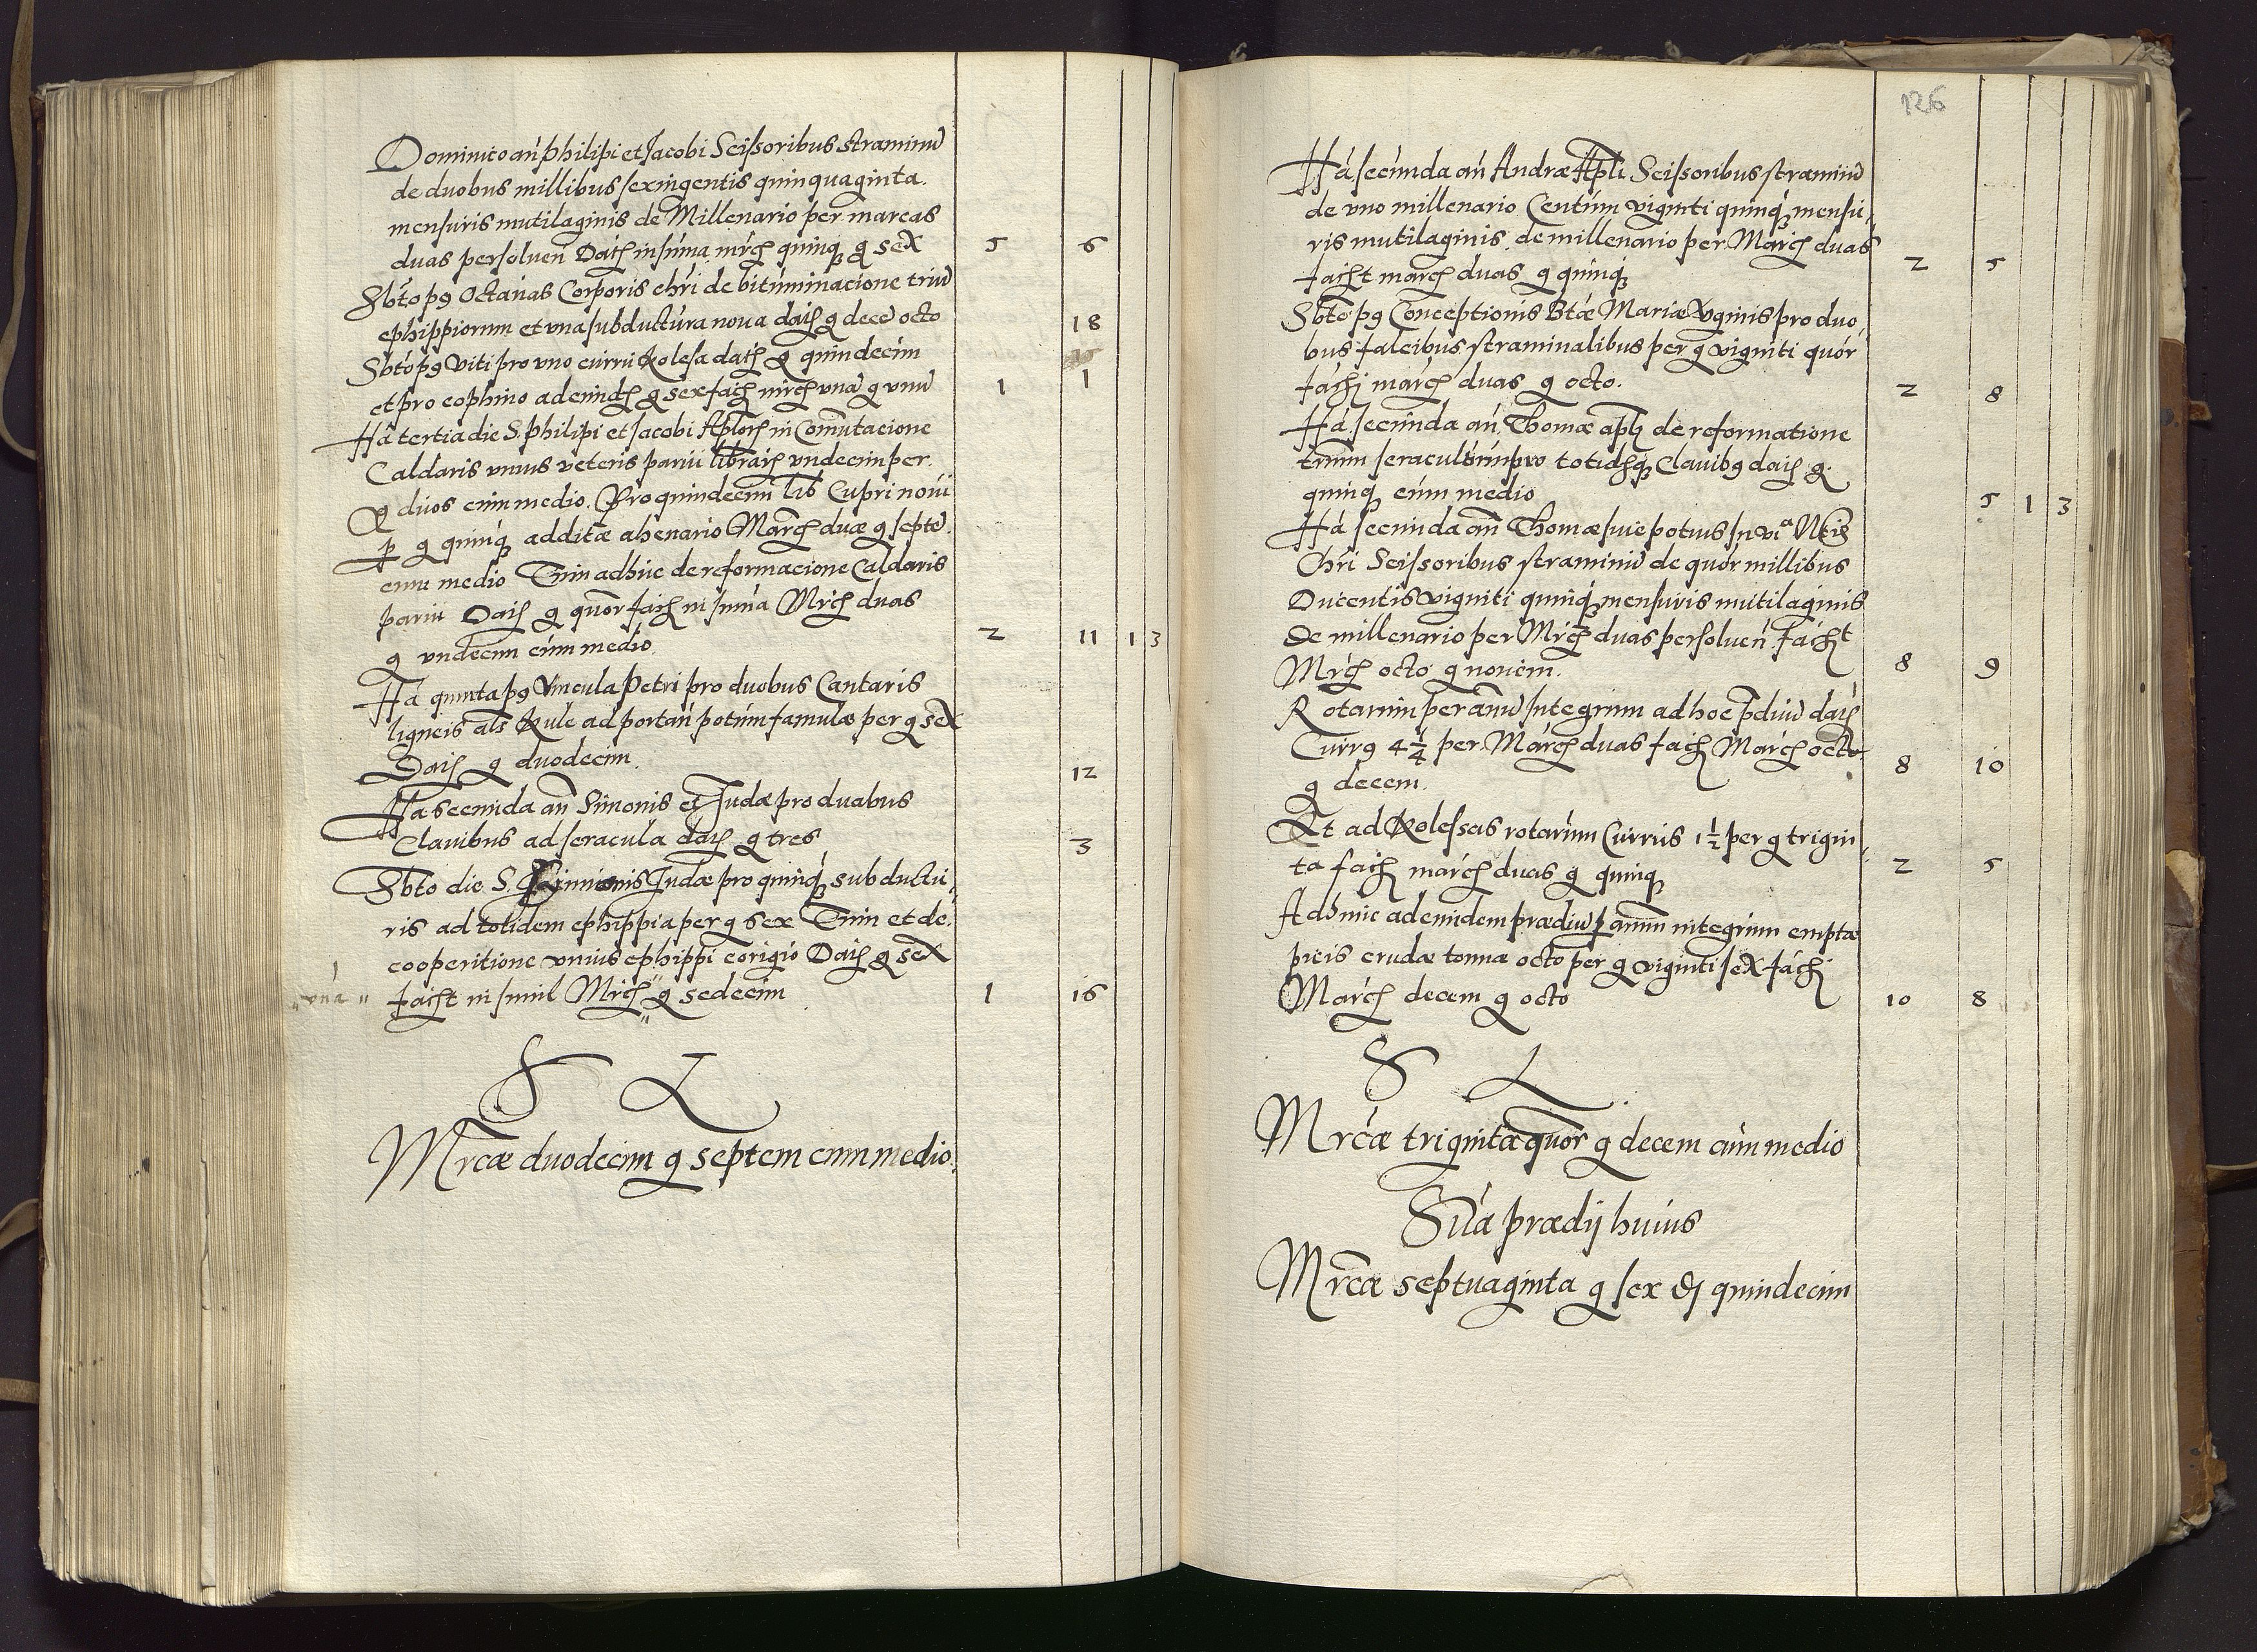 Dominico an Philipi et Jacobi Scissoribus straminu
de duobus millibus sexingentis quinquaginta.
mensuris mutilaginis de Millenario per marcas
duas persoluen Daīs in suma mrcs quinq g sex 5 6
Sbto pg Octauas Corporis chri de bituminacione triu
ephippiorum et vna subductura noua dats g dece octo 18
Sbto pg Viti pro vno curru Kolesa dats g quindecim 15
et pro cophino ad eund g sex facs mrcs vna g vnu 1 1
Ha tertia die S. Philipi et Jacobi Aplors in Comutacione
Caldaris vnius veteris parui librars vndecim per.
g duos cum medio. Pro quindecim lib Cupri noui
p g quinq additæ ahenario Marcs duæ g septe
cum medio Tum adhuc de reformacione Caldaris
parui Dats g quor facs in suma Mrcs duas
g vndecim cum medio 2 11 1 3
Ha quinta pg Vincula Petri pro duobus Cantaris
ligneis als Kule ad portan potum famulæ per g sex
Dats g duodecim. 12
Ha secunda an Simonis et Judæ pro duabus
Clauibus ad seracula dats g tres 3
Sbto die S. Simonis Judæ pro quinq subductu,
ris ad totidem ephippia per g sex Tum et de
cooperitione vnius ephippi corigio Dats g sex
"vna" facst in simil Mrcs " g sedecim 1 16
S L
Mrcæ duodecim g septem cum medio.
126
Ha secunda an Andræ Apli Scissoribus straminu
de vno millenario Centum viginti quinq mensu,
ris mutilaginis de millenario per Marcs duas
facst marcs duas g quinq 2 5
Sbto pg Conceptionis Btæ Mariæ Vginis pro duo,
bus falcibus straminalibus per g viginti quor
facs marcs duas g octo. 2 8
Ha secunda an Thomæ apls de reformatione
trium seraculorum pro totidsq Clauibg dats g
quinq cum medio 5 1 3
Ha secunda an Thomæ siue potius In via Ntis
Chri Scissoribus straminu de quor millibus
Ducentis viginti quinq mensuris mutilaginis
De millenario per Mrcs duas persoluen facst
Mrcs octo g nouem. 8 9
Rotarum per annu Integrum ad hoc pdiu dats
Currg 4 1/4 per Marcs duas facs Marcs octo
g decem. 8 10
Et ad Kolessas rotarum Currus 1 1/2 per g trigin,
ta facs marcs duas g quinq 2 5
Adhuc ad eundem prædiu p annum integrum emptæ
picis crudæ tonnæ octo per g viginti sex facs
Marcs decem g octo 10 8
S L
Mrcæ triginta quor g decem cum medio
Sua prædij huius
Mrcæ septuaginta g sex d quindecim